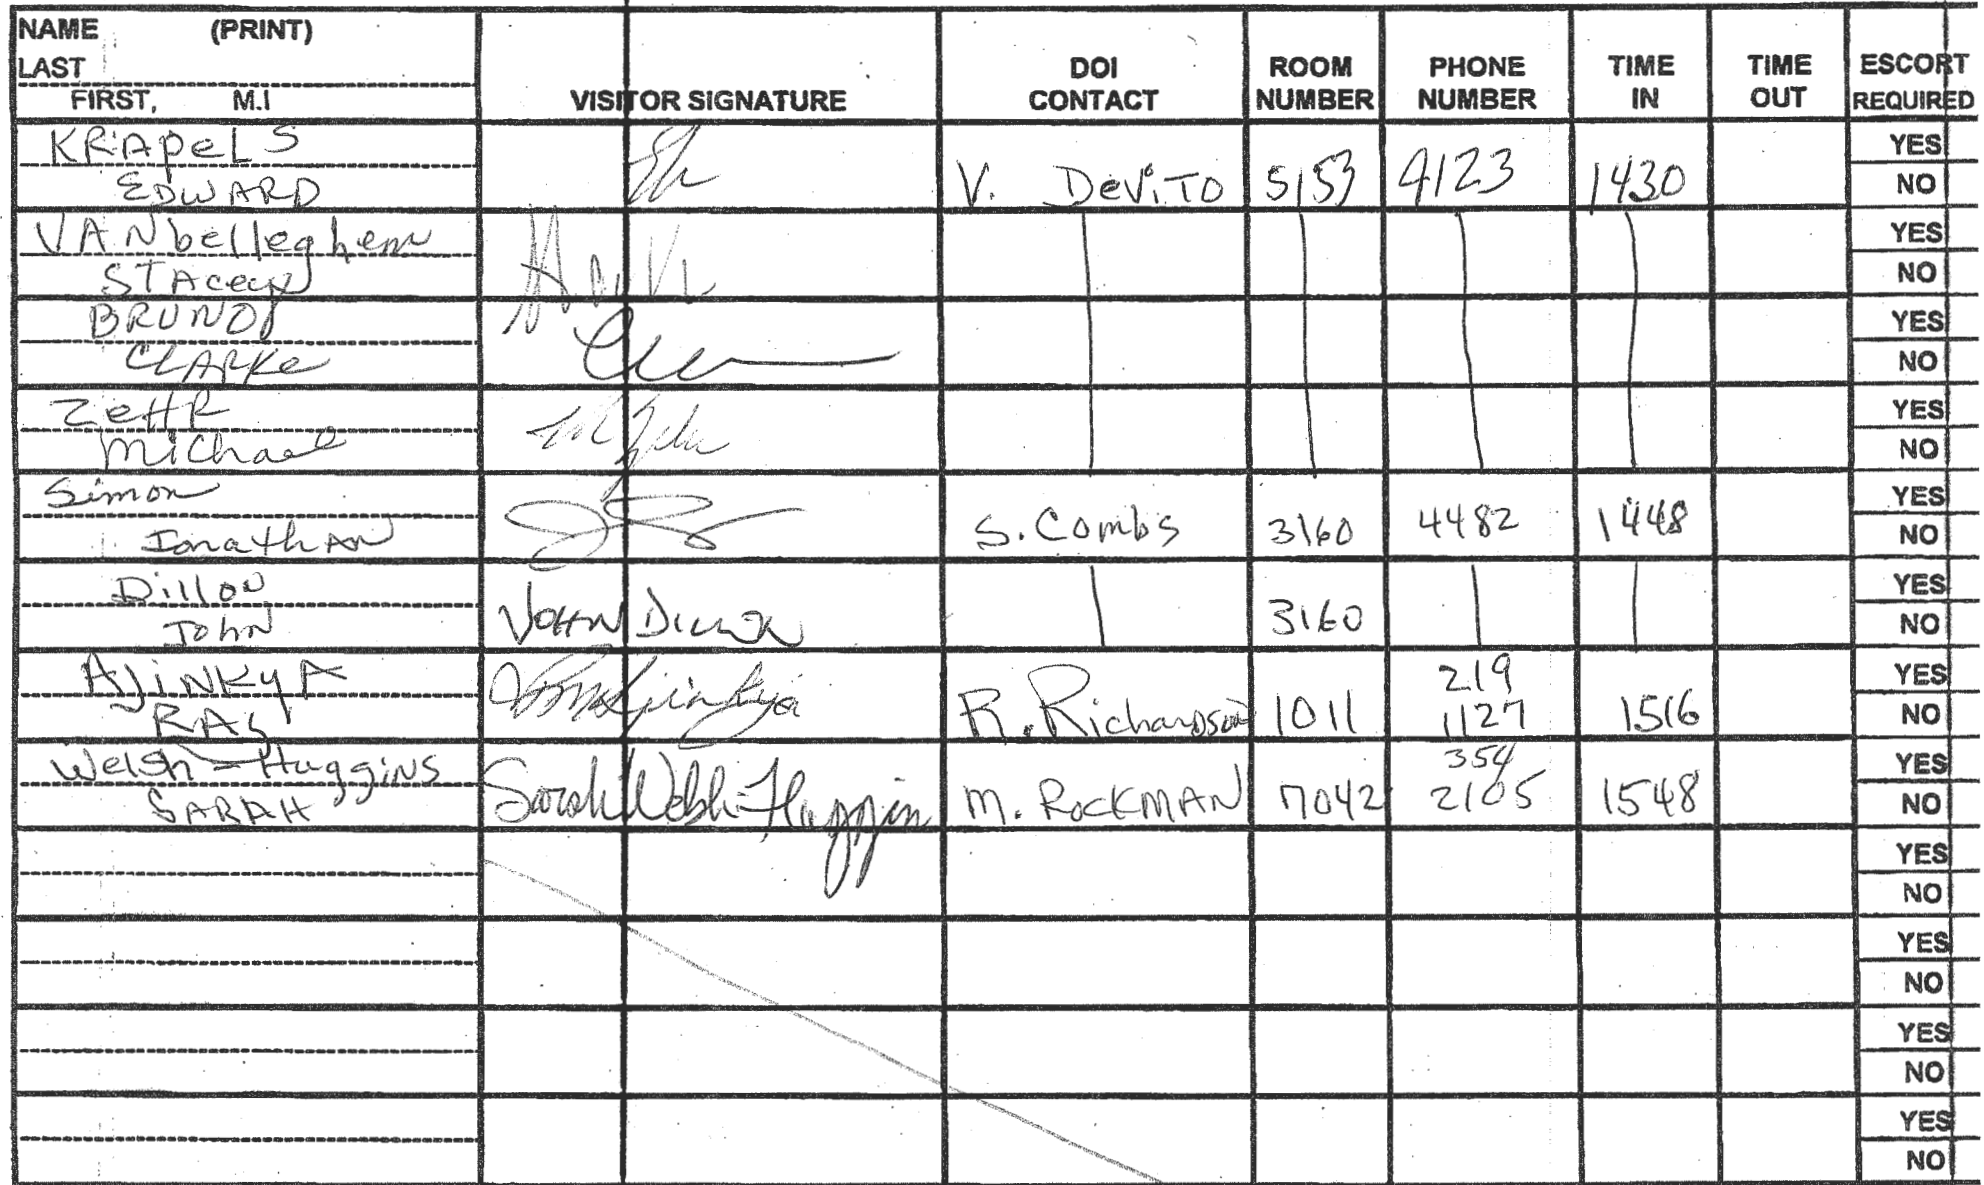 NAME (PRINT)
LAST
FIRST, M.I
VISITOR SIGNATURE
DOI CONTACT
ROOM NUMBER
PHONE NUMBER
TIME IN
TIME OUT
ESCORT REQUIRED
KRApelS
EDWARD
V. DeViTO 5153 4123 1430
YES
NO
VANbelleghem
STAcey
YES
NO
BRUNO
CLARKe
YES
NO
ZeHR
Michael
YES
NO
Simon
Jonathan
S. Combs 3160 4482 1448
YES
NO
Dillon
John
JOHN DILLON
3160
YES
NO
AJiNKyA
RAJ
R. Richardson 1011 219 1127 1516
YES
NO
Welsh-Huggins
SARAH
Sarah Welsh-Huggins
M. ROCKMAN 7042 354 2105 1548
YES
NO
YES
NO
YES
NO
YES
NO
YES
NO